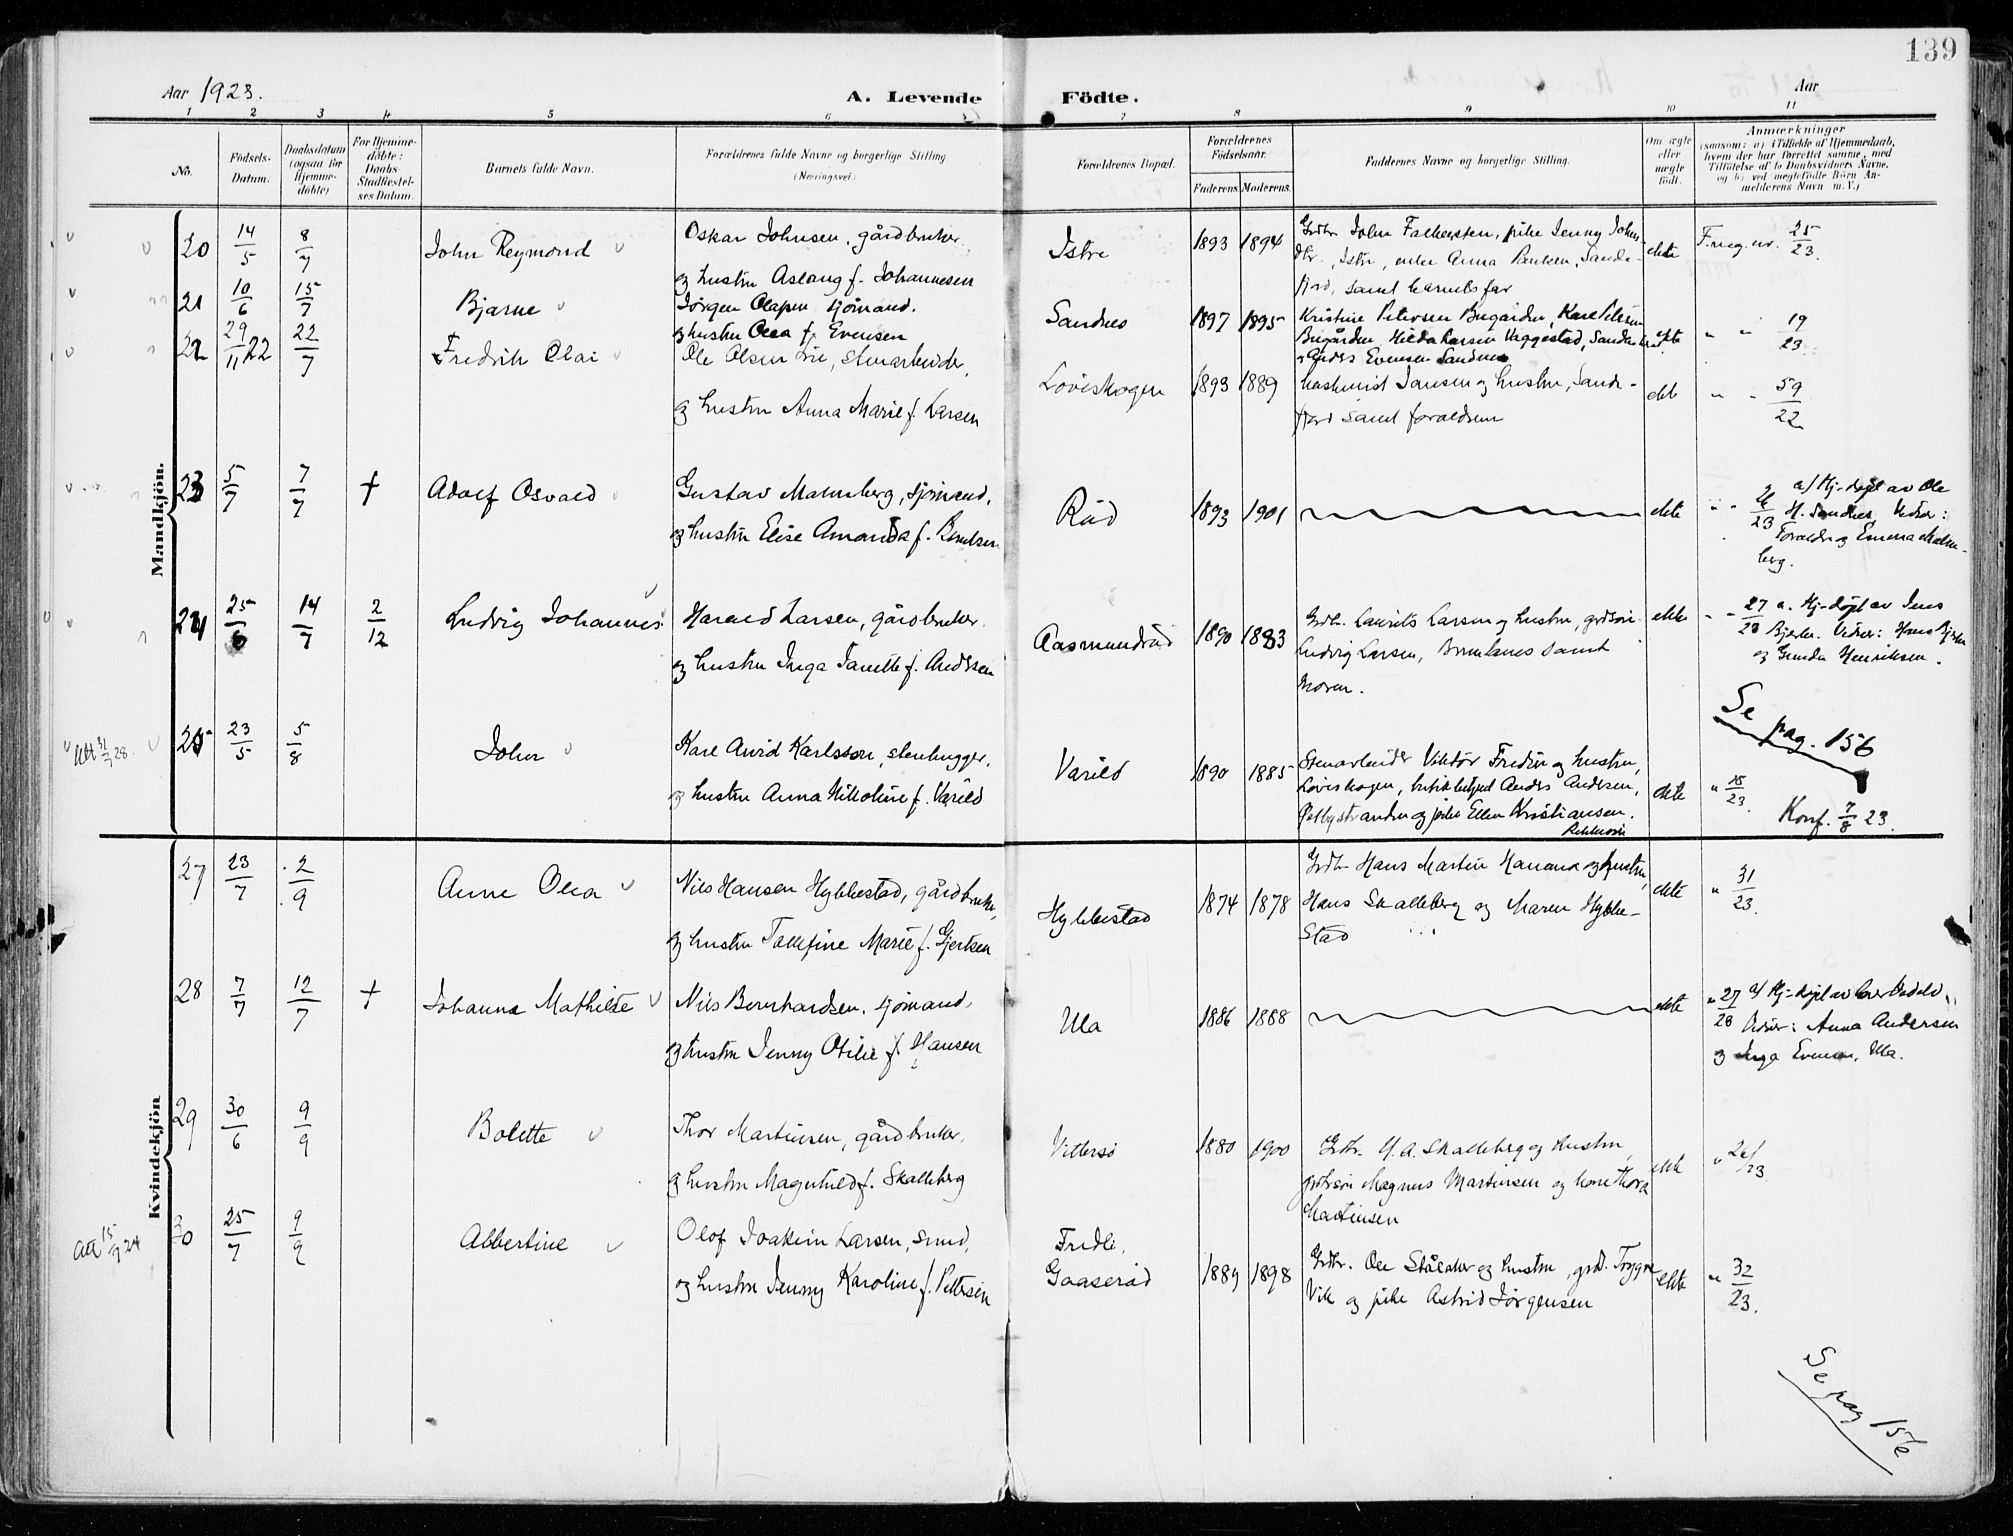 139
Aar 1923.
A. Levende Födte.
Aar
1 2 3 4 5 6 7 8 9 10 11
No.
Födsels-Datum.
Daabsdatum (ogsaa for Hjemme-döbte)
For Hjemme-döbte: Daabs-Stadfæstel-ses Datum.
Barnets fulde Navn.
Forældrenes fulde Navne og borgerlige Stilling
(Næringsvei)
Forældrenes Bopæl.
Forældrenes Födselsaar.
Faderens
Moderens.
Faddernes Navne og borgerlige Stilling.
Om ægte eller uægte födt.
Anmærkninger
(saasom: a) i Tilfælde af Hjemmedaab, hvem der har forrettet samme, med Tilföielse af to Daabsvidners Navne, og b) ved uægtefödte Börn An-melderens Navn m. V.)
Mandkjön.
20 14/5 8/7 John Reymond Oskar Johnsen, gårdbruker
og hustru Aslaug f. Johannesen
Istre 1893 1894 Grdbr. John Falkersten, pike Jenny Johns-
dtr., Istre, enke Anna Paulsen, Sande-
fjord, samt barnets far
ekte 25/23.
21 10/6 15/7 Bjarne Jörgen Olapen sjömand.
og hustru Olea f. Evensen
Sandnes 1897 1895 Kristine Petersen Bugården, Kare Petersen
Bugården, Hilda Larsen Vaggestad,
Anders Evensen Sandnes
ekte " " 19/23.
22 29/11 22 22/7 Fredrik Olai Ole Olsen Lie, stenarbeider,
og hustru Anna Marie f. Larsen
Löviskogen 1893 1889 Jansen og hustru, Sande-
fjord samt foraldrene
ekt " " 59/22
23 5/7 7/7 + Adolf Osvald Gustav Malmberg, sjömand,
og hustru Elise Amanda f. Bentsen
Råd 1893 1901 ekte " " /23
a/ Hj-döpt av Ole
H. Sandnes Vidner:
Foraldre og Emma Malm-
berg.
24 25/6 14/7 2/12 Ludvig Johannes Harald Larsen, gårdbruker
og hustru Inga Janette f. Andersen
Aasmundrud 1890 1883 Grdbr. Laurits Larsen og hustru, grdsön
Ludvig Larsen, Brunlanes samt
moren.
ekte " " 27/23 a. Hj-döpt av Jens
Bjerke. Vidner: Hans Bjerke
og Gunda Henriksen.
Se pag. 156
Att 31/7 28.
25 23/5 5/8 John Karl Arvid Karlsson, stenhugger,
og hustru Anna Nikoline f. Varild
Varild 1890 1885 Stenarbeider Viktor Fredin og hustru,
Löviskogen, Anders Andersen,
og pike Ellen Kristiansen.
ekte " 18/23.
Konf. 7/8 23.
Kvindekjön
27 23/7 2/9 Anne Olea Nils Hansen Hybbestad, gårdbruker,
og hustru Tallefine Marie f. Gjertsen
Hybbestad 1874 1878 Grdbr. Hans Martin Hanana og hustru,
Hans Skalleberg og Maren Hybbe-
stad
ekte " 31/23.
28 7/7 12/7 + Johanna Mathilde Nils Bernhardsen, sjömand,
og hustru Jenny Otilie f. Hansen
Ula 1886 1888 ekte " 27/23 a/ Hj-döpt av
Vidner: Anna Andersen
og Inga Evensen, Ula.
29 30/6 9/9 Bolette Thor Martinsen, gårdbruker,
og hustru Magnhild f. Skalleberg
Vittersö 1880 1900 Grdbr. H. A. Skalleberg og hustru,
grdsön Magnus Martinsen og kone Thora
Martinsen
ekte " 26/23
Att 15/9 24
30 25/7 9/9 Albertine Olof Joakim Larsen, smed,
og hustru Jenny Karoline f. Pettersen
Fredli,
Gaaseråd 1889 1898 Grdbr. Ole Ståláker og hustru, grd. Trygve
Vik og pike Astrid Jörgensen
ekte " 32/23.
Se pag 156